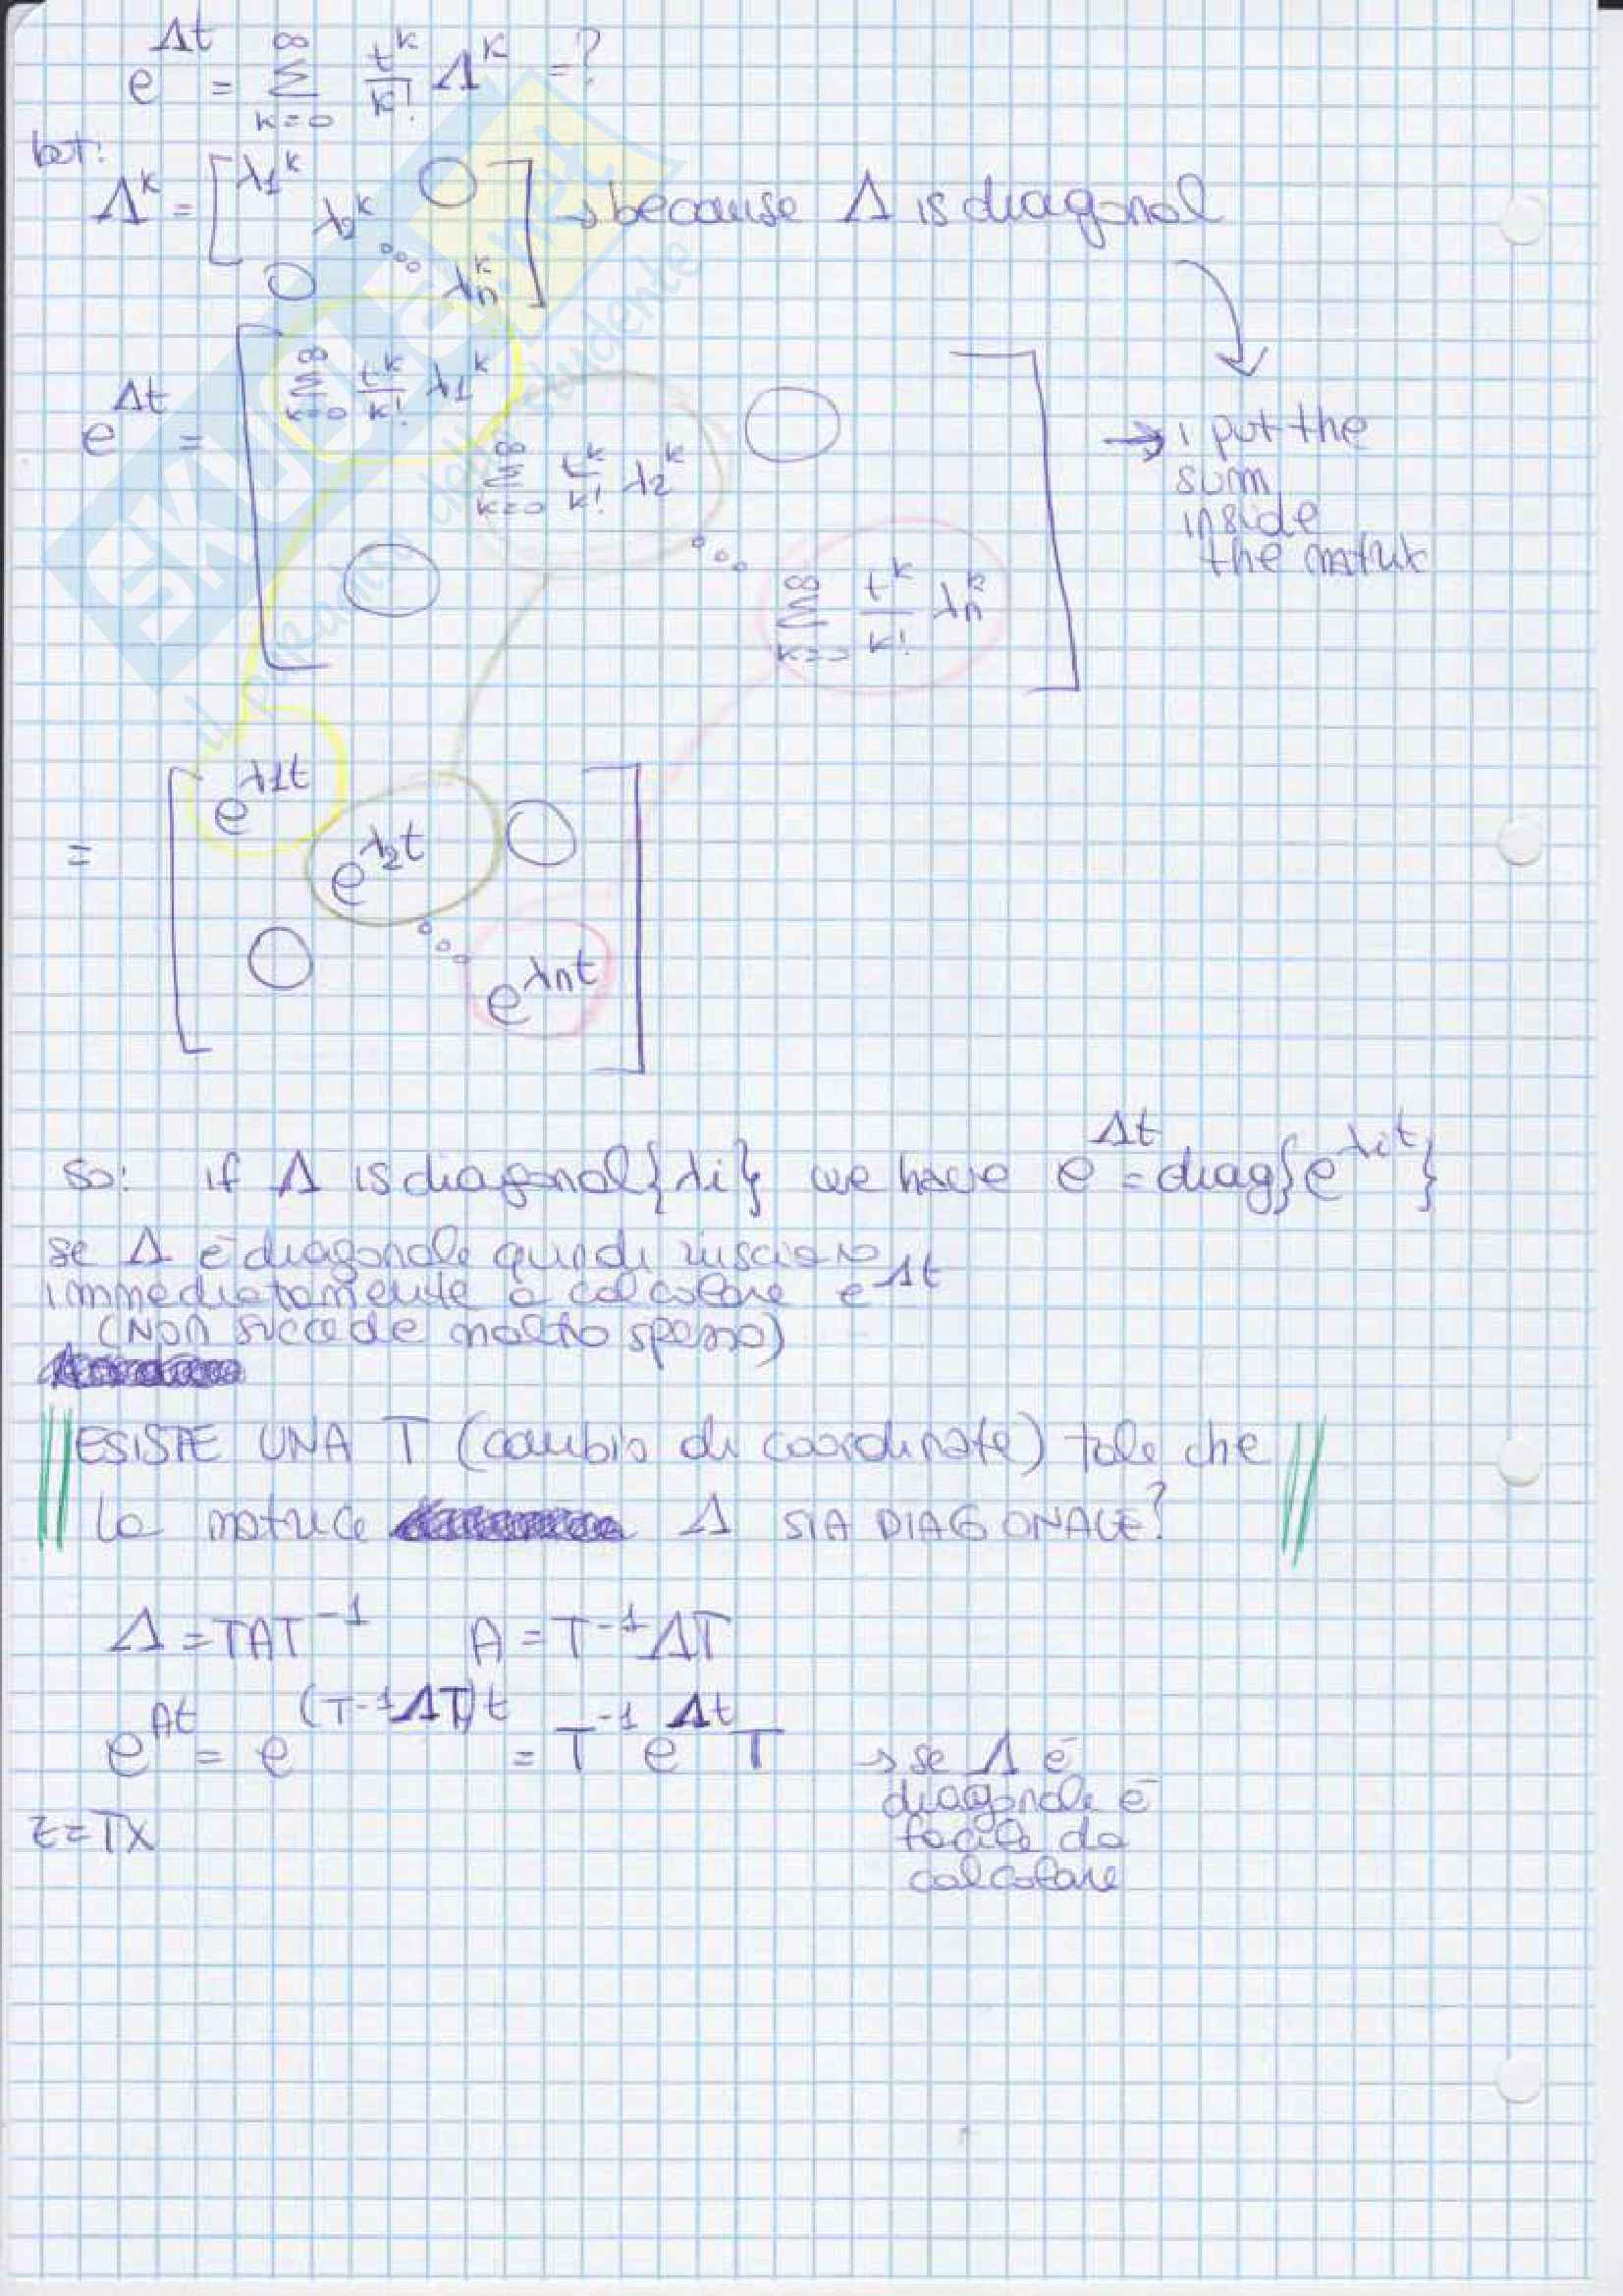 e^Λt = ∞ Σ k=0 t^k/k! Λ^k = ?
but:
Λ^k = [λ1^k λ2^k ... λn^k 0 0] → because Λ is diagonal
e^Λt = [∞ Σ k=0 t^k/k! λ1^k ∞ Σ k=0 t^k/k! λ2^k ... ∞ Σ k=0 t^k/k! λn^k 0 0]
→ i put the
sum
inside
the matrix
= [e^λ1t e^λ2t ... e^λnt 0 0]
so: if Λ is diagonal {λi} we have e^Λt = diag{e^λit}
se Λ é diagonale quindi riusciamo
immediatamente a calcolare e^Λt
(Non succede molto spesso)
ESISTE UNA T (cambio di coordinate) tale che
la matrice Λ SIA DIAGONALE?
Λ = TAT^-1 A = T^-1ΛT
e^At = e^(T-1ΛT)t = T^-1 e^Λt T → se Λ é
diagonale é
facile da
calcolare
z = Tx
SKUOLA.net
il paradiso dello studente